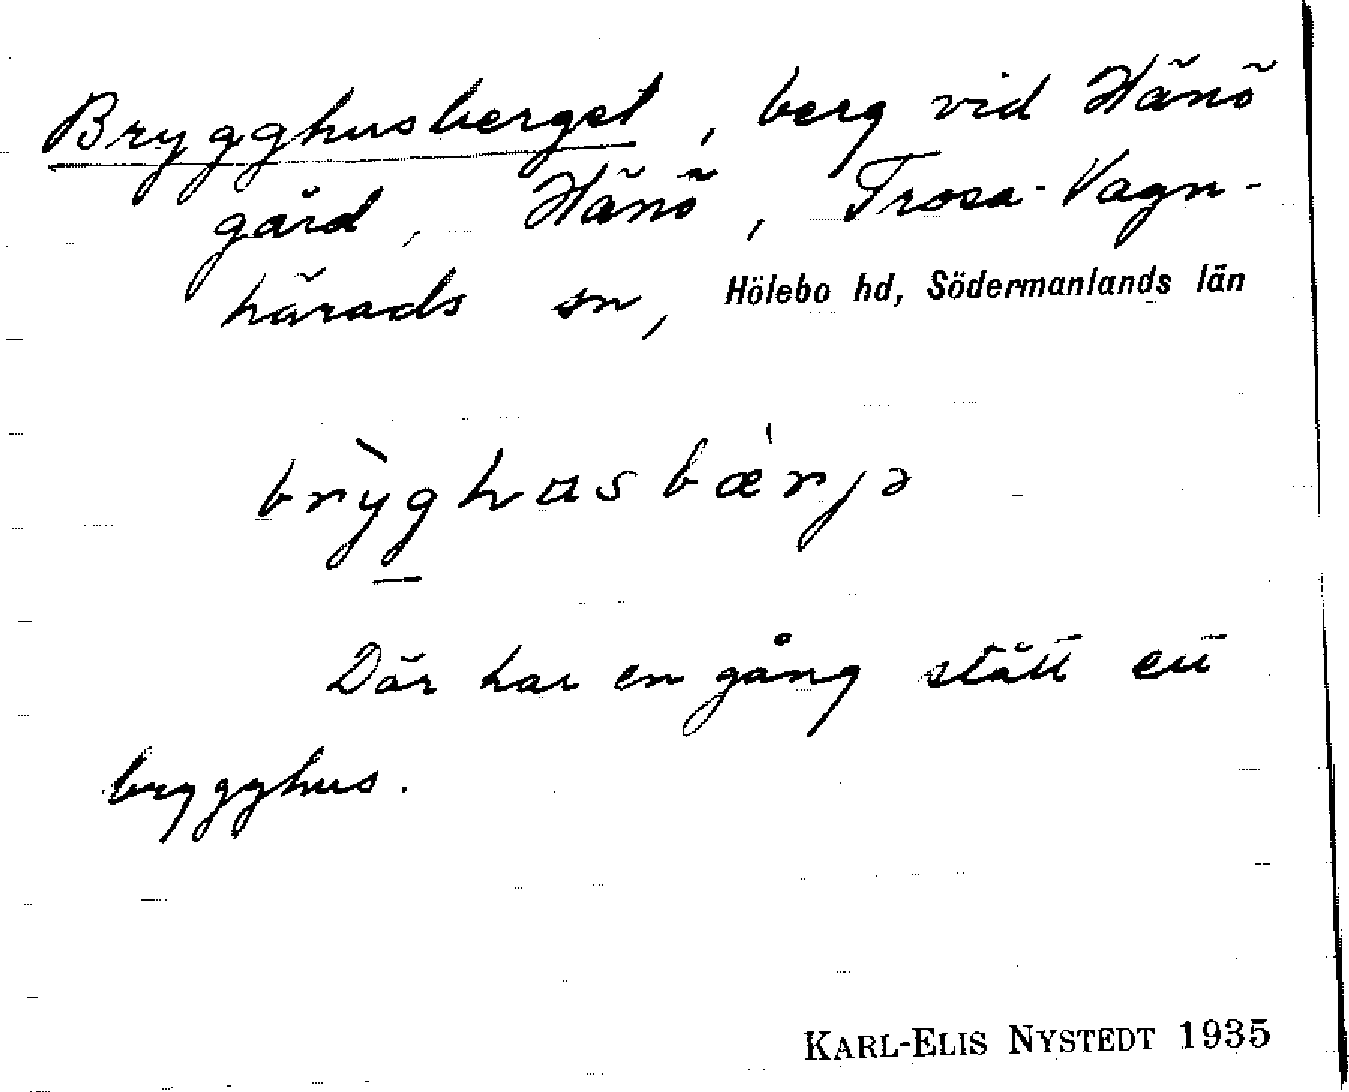 Brygghusberget, berg vid Hänö
gård, Hänö, Trosa-Vagn-
härads sn, Hölebo hd, Södermanlands län
brỳghɷsbæ̀rjə
Där har en gång stått ett
brygghus.
KARL-ELIS NYSTEDT 1935